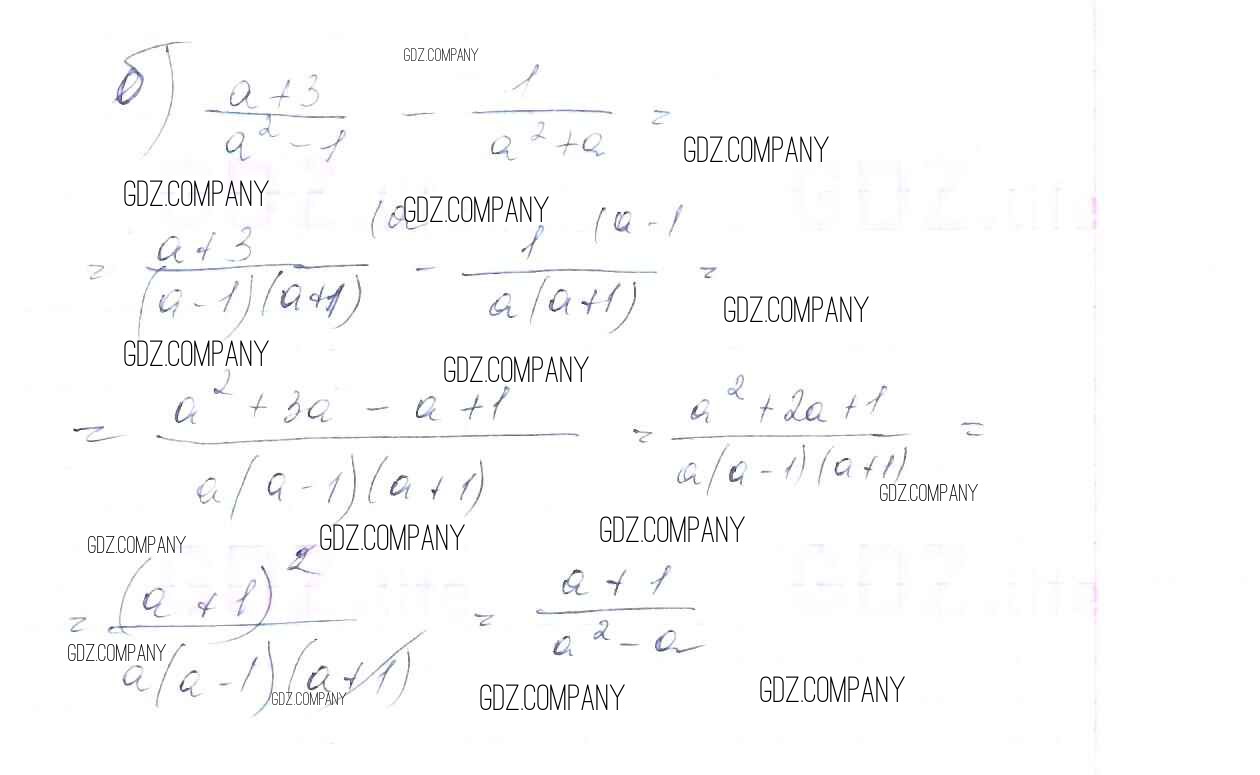 GDZ.COMPANY
б) (a+3)/(a²-1) - 1/(a²+a) =
GDZ.COMPANY
GDZ.COMPANY GDZ.COMPANY
= (a+3)/((a-1)(a+1)) (a - 1/(a(a+1)) (a-1 =
GDZ.COMPANY
GDZ.COMPANY GDZ.COMPANY
= (a²+3a-a+1)/(a(a-1)(a+1)) = (a²+2a+1)/(a(a-1)(a+1)) =
GDZ.COMPANY
GDZ.COMPANY GDZ.COMPANY GDZ.COMPANY
= (a+1)²/(a(a-1)(a+1)) = (a+1)/(a²-a)
GDZ.COMPANY
GDZ.COMPANY GDZ.COMPANY GDZ.COMPANY